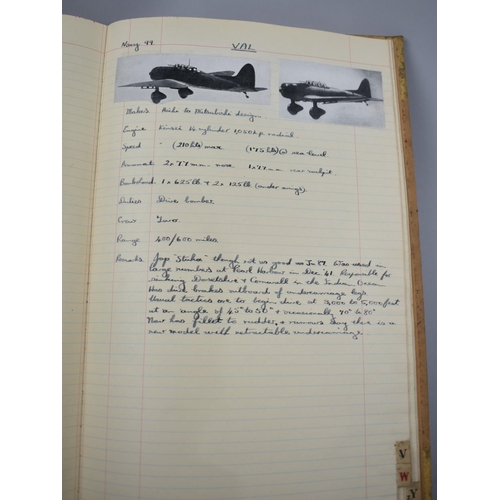 Navy 99 VAL
Makers Aichi to Mitsubishi design.
Engine Kinsei 14 cylinder 1,050 h.p. radial.
Speed (210 kts) max (175 kts) @ sea level.
Armament 2 x 7.7 mm nose 1 x 7.7 mm rear cockpit.
Bombload 1 x 625 lb + 2 x 125 lb (under wings).
Duties Dive bomber
Crew Two.
Range 400/600 miles
Remarks Jap "Stuka" though not as good as Ju 87. Was used in
large numbers at Pearl Harbour in Dec '41. Responsible for
sinking Dorsetshire & Cornwall in the Indian Ocean
Has dive brakes outboard of undercarriage legs.
Usual tactics are to begin dive at 3,000 to 5,000 feet
at an angle of 45° to 50° & occasionally 70° to 80°
Now has fillet to rudder, & rumours say there is a
new model with retractable undercarriage.
V
W
Y